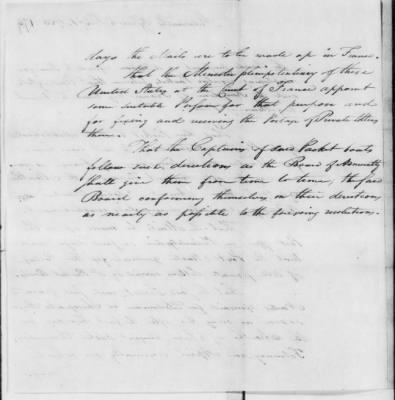 days the Mails are to be made up in France.
That the Minister plenipotentiary of these
United States at the Court of France appoint
some suitable Person for that purpose and
for fixing and receiving the Postage of Private letters
there.
That the Captains of said Packet boats
follow such directions as the Board of Admiralty
shall give them from time to time, the said
Board conforming themselves in their directions
as nearly as possible to the foregoing resolutions.